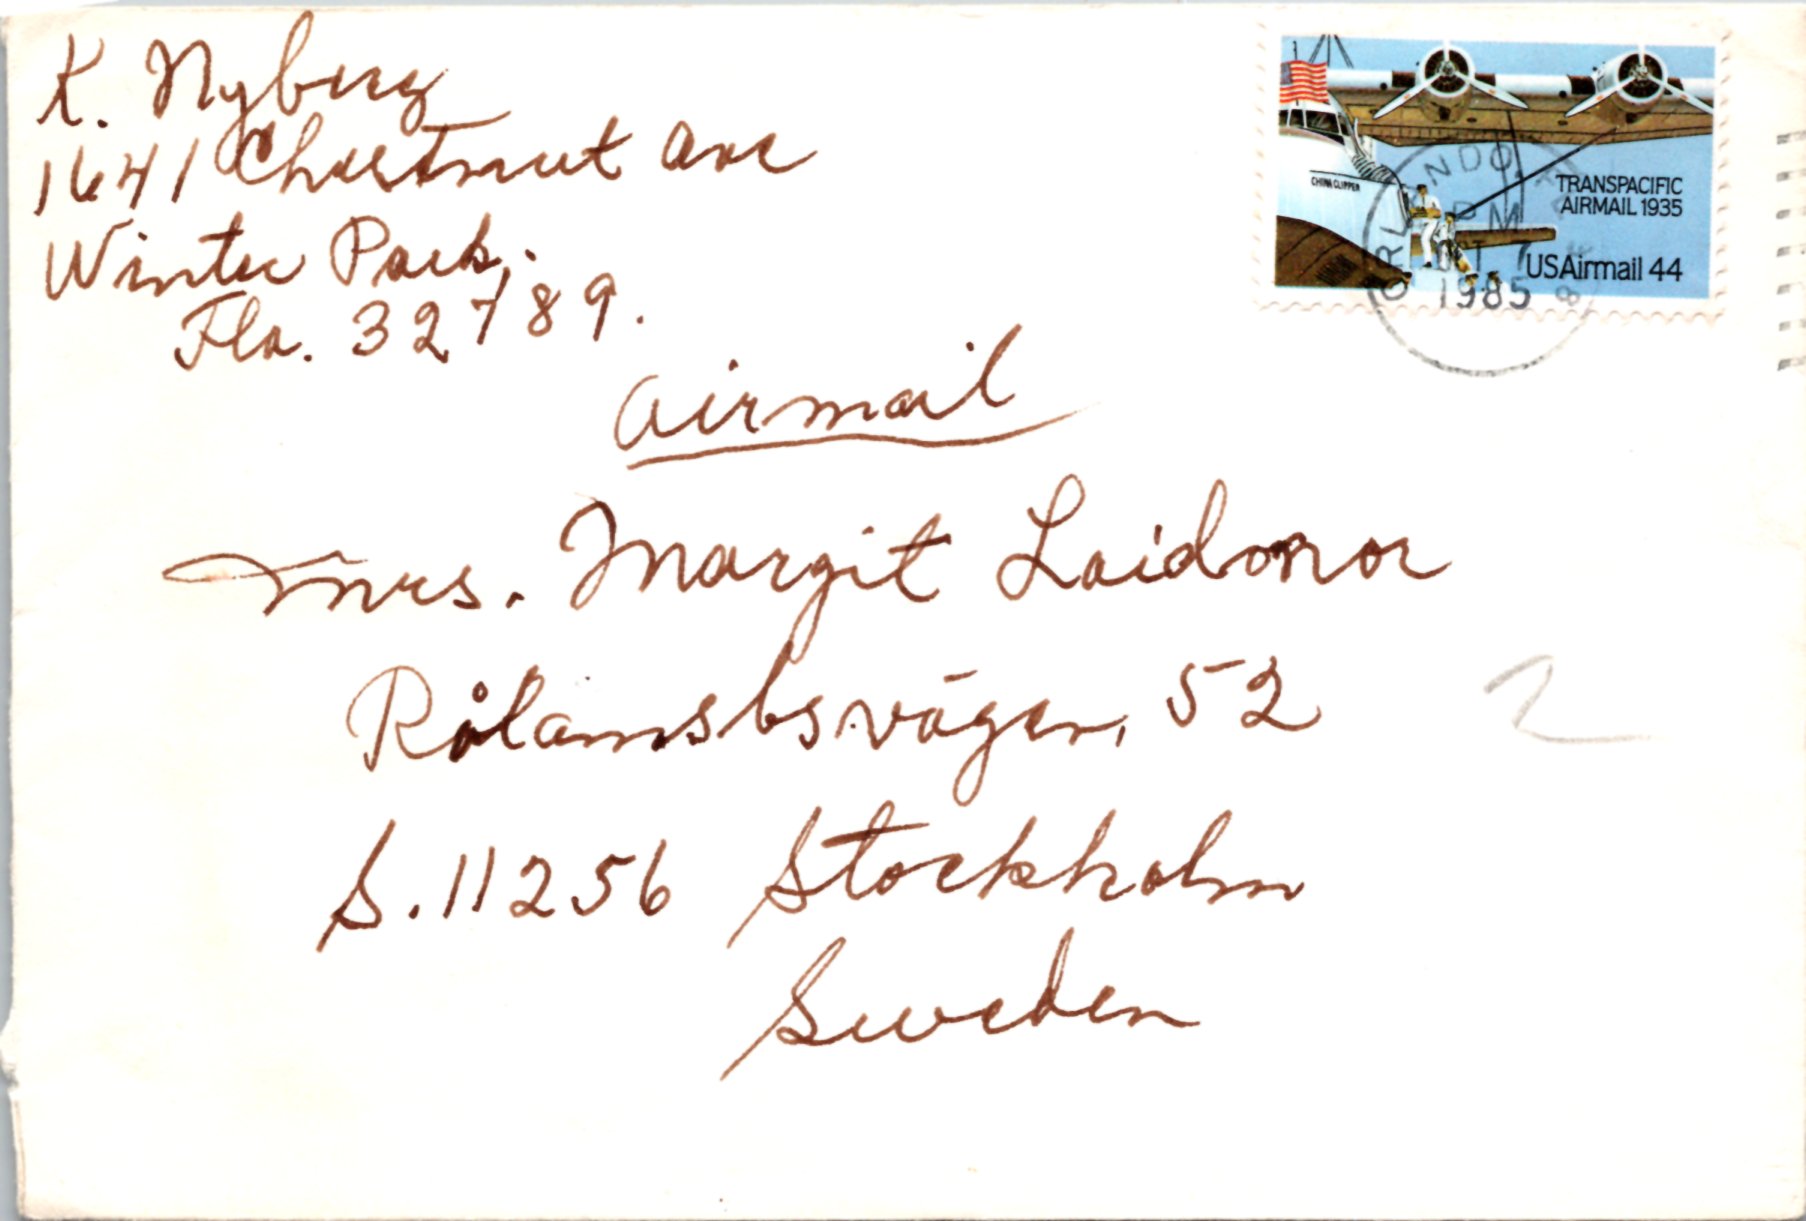 K. Nyberg
1641 Chestnut Ave
Winter Park,
Fla. 32789.
TRANSPACIFIC
AIRMAIL 1935
CHINA CLIPPER
USAirmail 44
ORLANDO
PM
1985
Airmail
Mrs. Margit Laidoner
Rålambsvägen, 52
S. 11256 Stockholm
Sweden
2